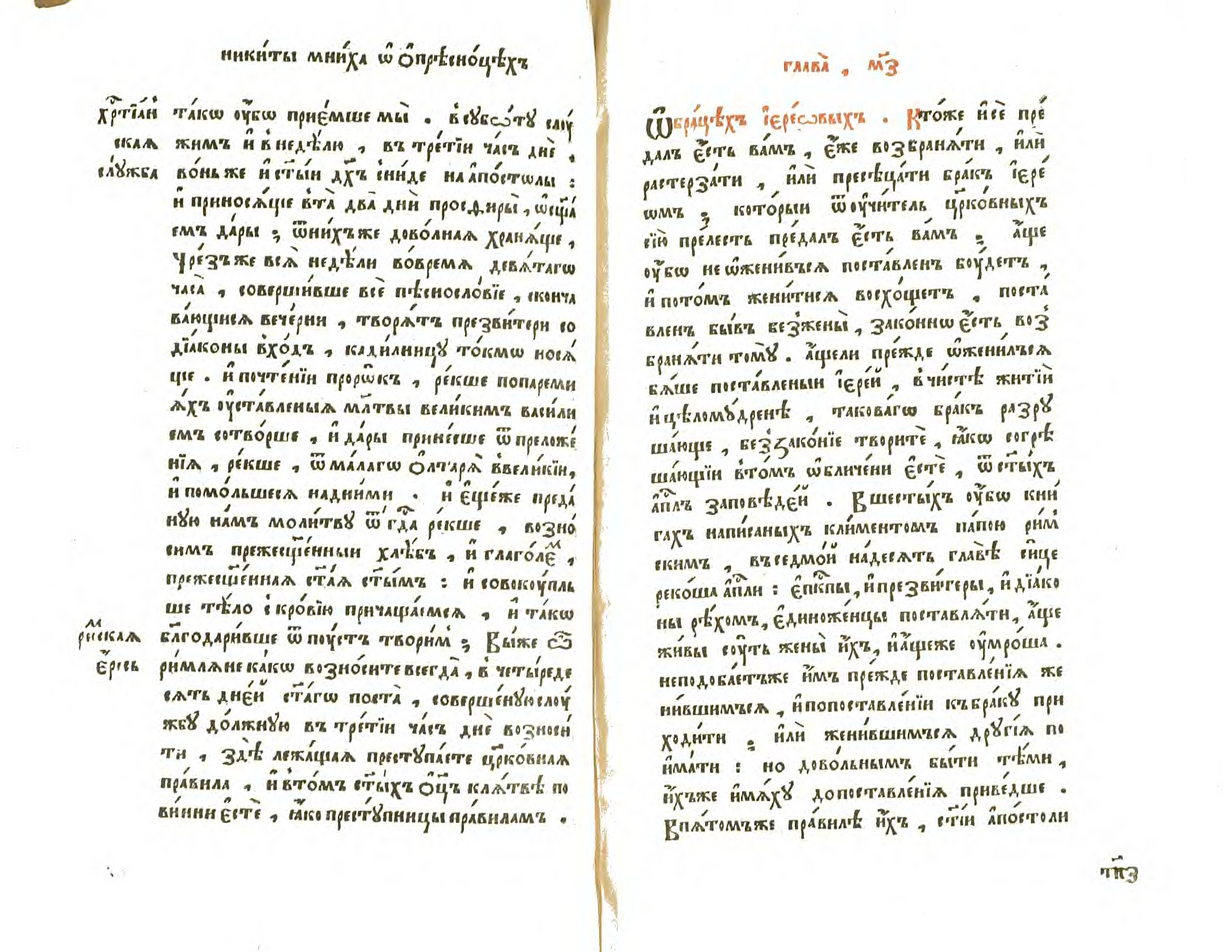 никиты мниха ѿ ѻпрѣсноцѣхъ
хрⷭ҇тїан
ская
служба
та́кѡ ᲂу҆́бѡ прие́мше мы̀ . в сꙋббѡ́тꙋ слоу́
жимъ и҆ в недѣ́лю , въ тре́тїи ча́съ днѐ ,
во́нь же и҆ ст҃ы́и дх҃ъ сни́де на а҆по́столы :
и҆ принося́ще в та̀ два̀ дни̑ просфиры̀ , ѡ҆сщ҃а́
емъ да́ры ; ѿ ни́хъ же дово́лная храня́ще ,
чре́зъ же всѧ̀ недѣ́ли во́ время девя́тагѡ
часа̀ , соверши́вше всѐ пѣснослѡ́вїе , сконча
ва́ющися вече́рни , творя́тъ презви́тери со
дїа́коны вхо́дъ , кади́лницꙋ то́кмѡ нося́
ще . и҆ почте́нїи прорѡ́къ , ре́кше по пареми
я́хъ ᲂу҆ста́вленыя мл҃твы вели́кимъ васи́ли
емъ сотво́рше , и҆ да́ры прине́сше ѿ преложе́
нїя , ре́кше , ѿ ма́лагѡ ѻ҆лтаря̀ в вели́кїи ,
и҆ помо́льшеся над ни́ми . и҆ е҆ще́ же преда́
нꙋю на́мъ моли́твꙋ ѿ гдⷭ҇а ре́кше , возно́
симъ прежесщ҃е́нныи хлѣ́бъ , и҆ глаго́леⷨ ,
прежесщ҃е́нная ст҃а́я ст҃ы́мъ : и҆ совокоу́пль
ше тѣ́ло с кро́вїю причаща́емся , и҆ та́кѡ
риⷨская
е҆́ресь
благодари́вше ѿпоу́стъ твори́м ; Вы́ же ѽ
ри́мляне ка́кѡ возно́сите всегда̀ , в четы́реде
ся́ть дне́й ст҃а́гѡ поста̀ , соверше́нꙋю слоу́
жбꙋ до́лжнꙋю въ тре́тїи ча́съ днѐ возноси́
ти , здѣ̀ лежа́щая преступа́ете цр҃ко́вная
пра́вила , и҆ в то́мъ ст҃ы́хъ ѻ҆ц҃ъ кля́твѣ по
ви́нни е҆стѐ , ꙗ҆́ко престꙋ́пницы пра́виламъ .
глава̀ , м҃з
Ѡ҆ бра́цѣхъ і҆ере́ѡвыхъ . Кто́ же и҆ сѐ пре́
далъ е҆́сть ва́мъ , е҆́же возбраня́ти , и҆лѝ
растерза́ти , и҆лѝ пресѣца́ти бра́къ і҆ере́
ѡмъ ; кото́рыи ѿ ᲂу҆чи́тель цр҃ко́вныхъ
сїю̀ пре́лесть пре́далъ е҆́сть ва́мъ ; а҆́ще
ᲂу҆́бѡ не ѡ҆жени́вься поста́вленъ боу́детъ ,
и҆ пото́мъ жени́тися восхо́щетъ , поста́
вленъ бы́въ без жены̀ , зако́ннѡ е҆́сть воз̾
браня́ти томꙋ̀ . а҆́ще ли пре́жде ѡ҆жени́лъся
бя́ше поста́вленыи і҆ере́й , в чи́стѣ житїѝ
и҆ цѣломꙋ́дренѣ , такова́гѡ бра́къ разрꙋ
ша́юще , без̾зако́нїе творитѐ , ꙗ҆́кѡ согрѣ
ша́ющїи в то́мъ ѡ҆бличе́ни е҆стѐ , ѿ ст҃ы́хъ
а҆пⷭ҇лъ за́повѣдей . В шесты́хъ ᲂу҆́бѡ кни́
гахъ напи́саныхъ кли́ментомъ па́пою ри́м
скимъ , въ седмо́й на́десять главѣ̀ си́це
реко́ша а҆пⷭ҇ли : е҆пкⷭ҇пы , и҆ презви́теры , и҆ дїа́ко
ны рѣ́хомъ , е҆диноже́нцы поставля́ти , а҆́ще
жи́вы соу́ть жены̀ и҆́хъ , и҆ а҆́ще же ᲂу҆мро́ша .
неподоба́етъ же и҆́мъ пре́жде поставле́нїя же
ни́вшимъся , и҆ по поставле́нїи къ бра́кꙋ при
ходи́ти ; и҆лѝ жени́вшимъся дрꙋгі́я по
има́ти : но дово́льнымъ бы́ти тѣ́ми ,
и҆́хъ же и҆мя́хꙋ до поставле́нїя приве́дше .
В пя́томъ же пра́вилѣ и҆́хъ , ст҃і́и а҆по́столи
тп҃з